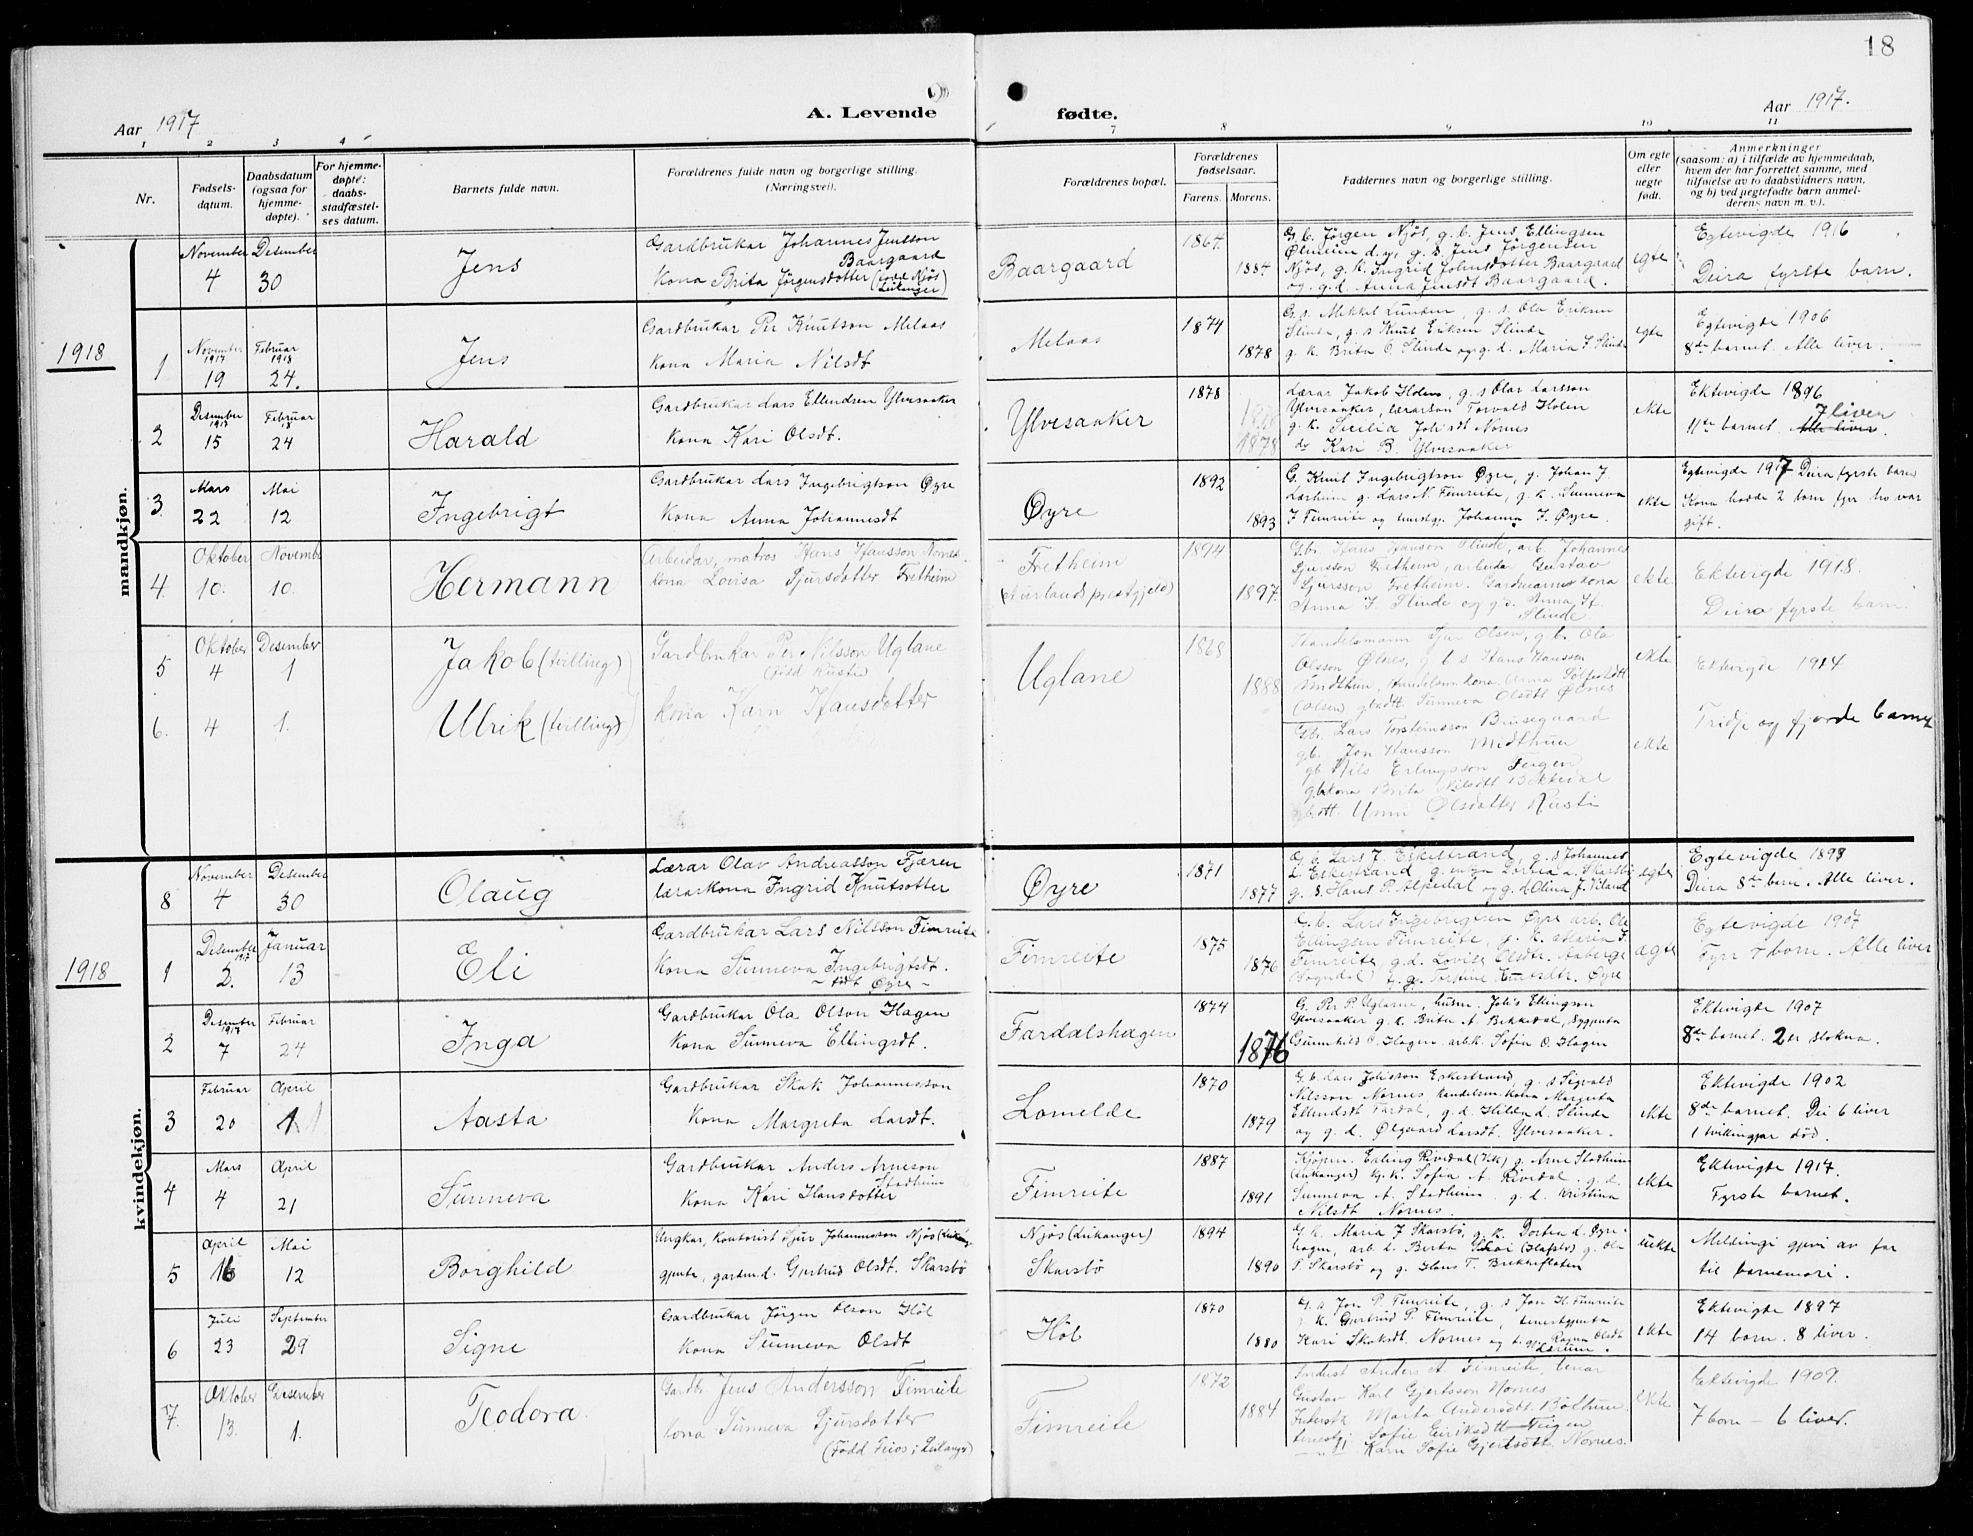 18
Aar 1917
A. Levende
fødte.
Aar 1917.
1 2 3 4 7 8 9 10 11
Nr.
Fødsels-
datum.
Daabsdatum
(ogsaa for
hjemme-
døpte).
For hjemme-
døpte:
daabs-
stadfæstel-
ses datum.
Barnets fulde navn.
Forældrenes fulde navn og borgerlige stilling.
(Næringsvei).
Forældrenes bopæl.
Forældrenes
fødselsaar.
Farens. Morens.
Faddernes navn og borgerlige stilling.
Om egte
eller
uegte
født.
Anmerkninger
(saasom: a) i tilfælde av hjemmedaab,
hvem der har forrettet samme, med
tilføielse av to daabsvidners navn,
og b) ved uegtefødte barn anmel-
derens navn m. v.).
mandkjøn.
November 4
Desember 30
Jens
Gardbrukar Johannes Jensson
Baargaard
Kona Brita Jørgensdotter (fødd Njøs
Leikanger)
Baargaard
1867.
1884
G. b. Jørgen Njøs, g. b. Jens Ellingsen
Ølmeim d.y., g. s. Jens Jørgensen
Njøs, g. k. Ingrid Johnsdotter Baargaard
og g. d. Anna Jensdt Baargaard.
egte
Egtevigde 1916
Deira fyrste barn.
1918
1
November 1917 19
Februar 1918 24.
Jens
Gardbrukar Per Knutson Melaas
Kona Maria Nilsdt
Melaas
1874
1878
G. s. Mikkel Lunden, g. s. Ola Eriksen
Slinde, g. s Knut Eriksen Slinde
g. k. Brita O. Slinde og g. d. Maria S. Slinde
egte
Egtevigde 1906
8de barnet. Alle liver.
2
Desember 1917 15
Februar 18 24
Harald
Gardbrukar Lars Ellendsen Ylvesaaker
Kona Kari Olsdt.
Ylvesaaker
1878
1878
Lærar Jakob Holen, g. s Olav Larsson
Ylvesaaker, lærarson Torvald Holen
g. k. Sicilia Joh.sdt Nornes
do Kari B. Ylvesaaker
ekte
Ektevigde 1896
7 liver
11te barnet. Alle liver.
3
Mars 22
Mai 12
Ingebrigt
Gardbrukar Lars Ingebrigtson Øyre
Kona Anna Johannesdt
Øyre
1892
1893
G. Knut Ingebrigtson Øyre, g. Johan J.
Lerheim g. Lars N. Fimreite, g. k. Sunneva
J Fimreite og tenestgj. Johanna J. Øyre.
ekte
Egtevigde 1917 Deira fyrste barn
Kona hadde 2 born fyr ho var
gift.
4.
Oktober 10.
Novembe 10.
Hermann
Arbeidar, matros Hans Hansson Nornes
kona Lovisa Sjursdotter Fretheim
Fretheim
(Aurlands prestgjeld)
1894
1897.
Gbr. Hans Hanson Slinde, arb. Johannes
Sjursson Fretheim, arbeidar Gustav
Sjursson Fretheim. Gardmannskona
Anna J. Slinde og g.d. Anna H.
Slinde
ekte
Ektevigde 1918.
Deira fyrste barn.
5
Oktober 4
Desember 1
Jakob (tvilling)
Gardbrukar Per Nilsson Uglane
(fødd Kusti)
Uglane
1868
1888
Handelsmann Sjur Olsen, g.b. Ola
Olsson Ølnes, g. b. s Hans Hansson
Midthun, Handelsm. kona Anna Sølfestdtt
(Olsen) gbdtt Sunneva Olsdtt Ølnes
ekte
Ektevigde 1914
6.
4
1.
Ulrik (tvilling)
kona Karn Hansdotter
Gbr. Lars Torsteinsson Brusegaard
gb. Jon Hansson Midthun
gb Nils Erlingsson
gbkona Brita Nilsdtt Bekkedal
gbdtt. Unni Olsdotter Kusti
ekte
Tridje og fjorde barnet
kvindekjøn.
8
November 4
Desember 30
Olaug
Lærar Olav Andreasson Fjæren
lærarkona Ingrid Knutsotter
Øyre
1871
1877
G. b. Lars J. Eskestrand, g. s Johannes
L. Eskestrand g. enkja Dorthea A. Skarsbø
g. s. Hans P. Alpedal og g. d Olina J. Viland
egte
Egtevigde 1898
Deira 8de barn. Alle liver.
1918
1
Desember 1917 2.
Januar 13
Eli
Gardbrukar Lars Nilsson Fimreite
Kona Sunneva Ingebrigtsdt.
– født Øyre –
Fimreite
1875
1876
G. b. Lars Ingebrigtsen Øyre arb. Ole
Ellingsen Fimreite, g. k. Maria J.
Fimreite, g.d. Lovise Olsdtr. Aaberge
(Sogndal) Øyre
ægte
Egtevigde 1907
Fyrr 7 born. Alle liver
2
Desember 1917 7
Februar 24
Inga
Gardbrukar Ola Olson Hagen
Kona Sunneva Ellingsdt.
Fardalshagen
1874
1876
G. Per P. Uglane, husm. Joh's Ellingson
Ylvesaaker g. k. Brita A. Bekkedal, sygjenta
Gunnhild O. Hagen arbk. Sofia O. Hagen
Ektevigde 1907
8de barnet. 2 er slokna.
3
Februar 20
April 1
Aasta
Gardbrukar Skak Johannesson
Kona Margreta Larsdt.
Lomelde
1870
1879
G. b. Lars Joh'sson Eskestrand, g. s Sigvald
Nilsson Nornes, handelsm. kona Margreta
Ellendsdt Fardal, g. d. Hilda L. Slinde
og g. d. Ølgaard Larsdt. Ylvesaaker.
ekte
Ektevigde 1902
8de barnet. Dei 6 liver
1 tvillingpar død.
4
Mars 4
April 21
Sunneva
Gardbrukar Anders Arneson
Stadheim
Kona Kari Hansdotter
Fimreite
1887
1891
Kjøpm. Erling Rivedal (Vik) g. Arne Stadheim
(Leikanger) kj. k. Sofia A. Rivedal. g. d.
Sunneva A. Stadheim g. d. Kristina
Nilsdt Nornes.
ekte
Ektevigde 1917.
Fyrste barnet.
5
April 16
Mai 12
Borghild
Ungkar, kontorist Sjur Johannesson Njøs (Leikang.
gjenta, gardm.d. Gjertrud Olsdt. Skarsbø
Njøs (Leikanger)
Skarsbø
1894
1890
G. k. Maria J Skarsbø, g. k. Dortea L. Øyre-
hagen, arb. L. Berta Skoi (Hafslo) g. Ola
P. Skarsbø og g. Hans T. Brekkeflaten
uekte
Meldingi gjevi av far
til barnemori.
6
Juli 23
September 29
Signe
Gardbrukar Jørgen Olson Høl
Kona Sunneva Olsdt
Høl
1870
1880
G. s Jon P. Fimreite, g. s Jon H. Fimreite
g. k. Gjertrud P. Fimreite, tenestgjenta
Kari Skaksdt. Nornes og t. gj. Ragna Olsdt
Lerum.
ekte
Ektevigde 1897
14 born. 8 liver.
7.
Oktober 13.
Desember 1.
Teodora.
Gardbr. Jens Andersson Fimreite
Kona Sunneva Sjursdotter
(Fødd Feios i Leikanger)
Fimreite
1872
1884
Inderst Anders A Fimreite, tenar
Gustav Karl Gjertsson Nornes
Inderstk Marta Andersdtt. Bølhun
tenestgj. Sofie Eiriksdtt Feigen
– " – Karn Sofie Gjertsdtt. Nornes.
ekte
Ektevigde 1907.
7 born – 6 liver.